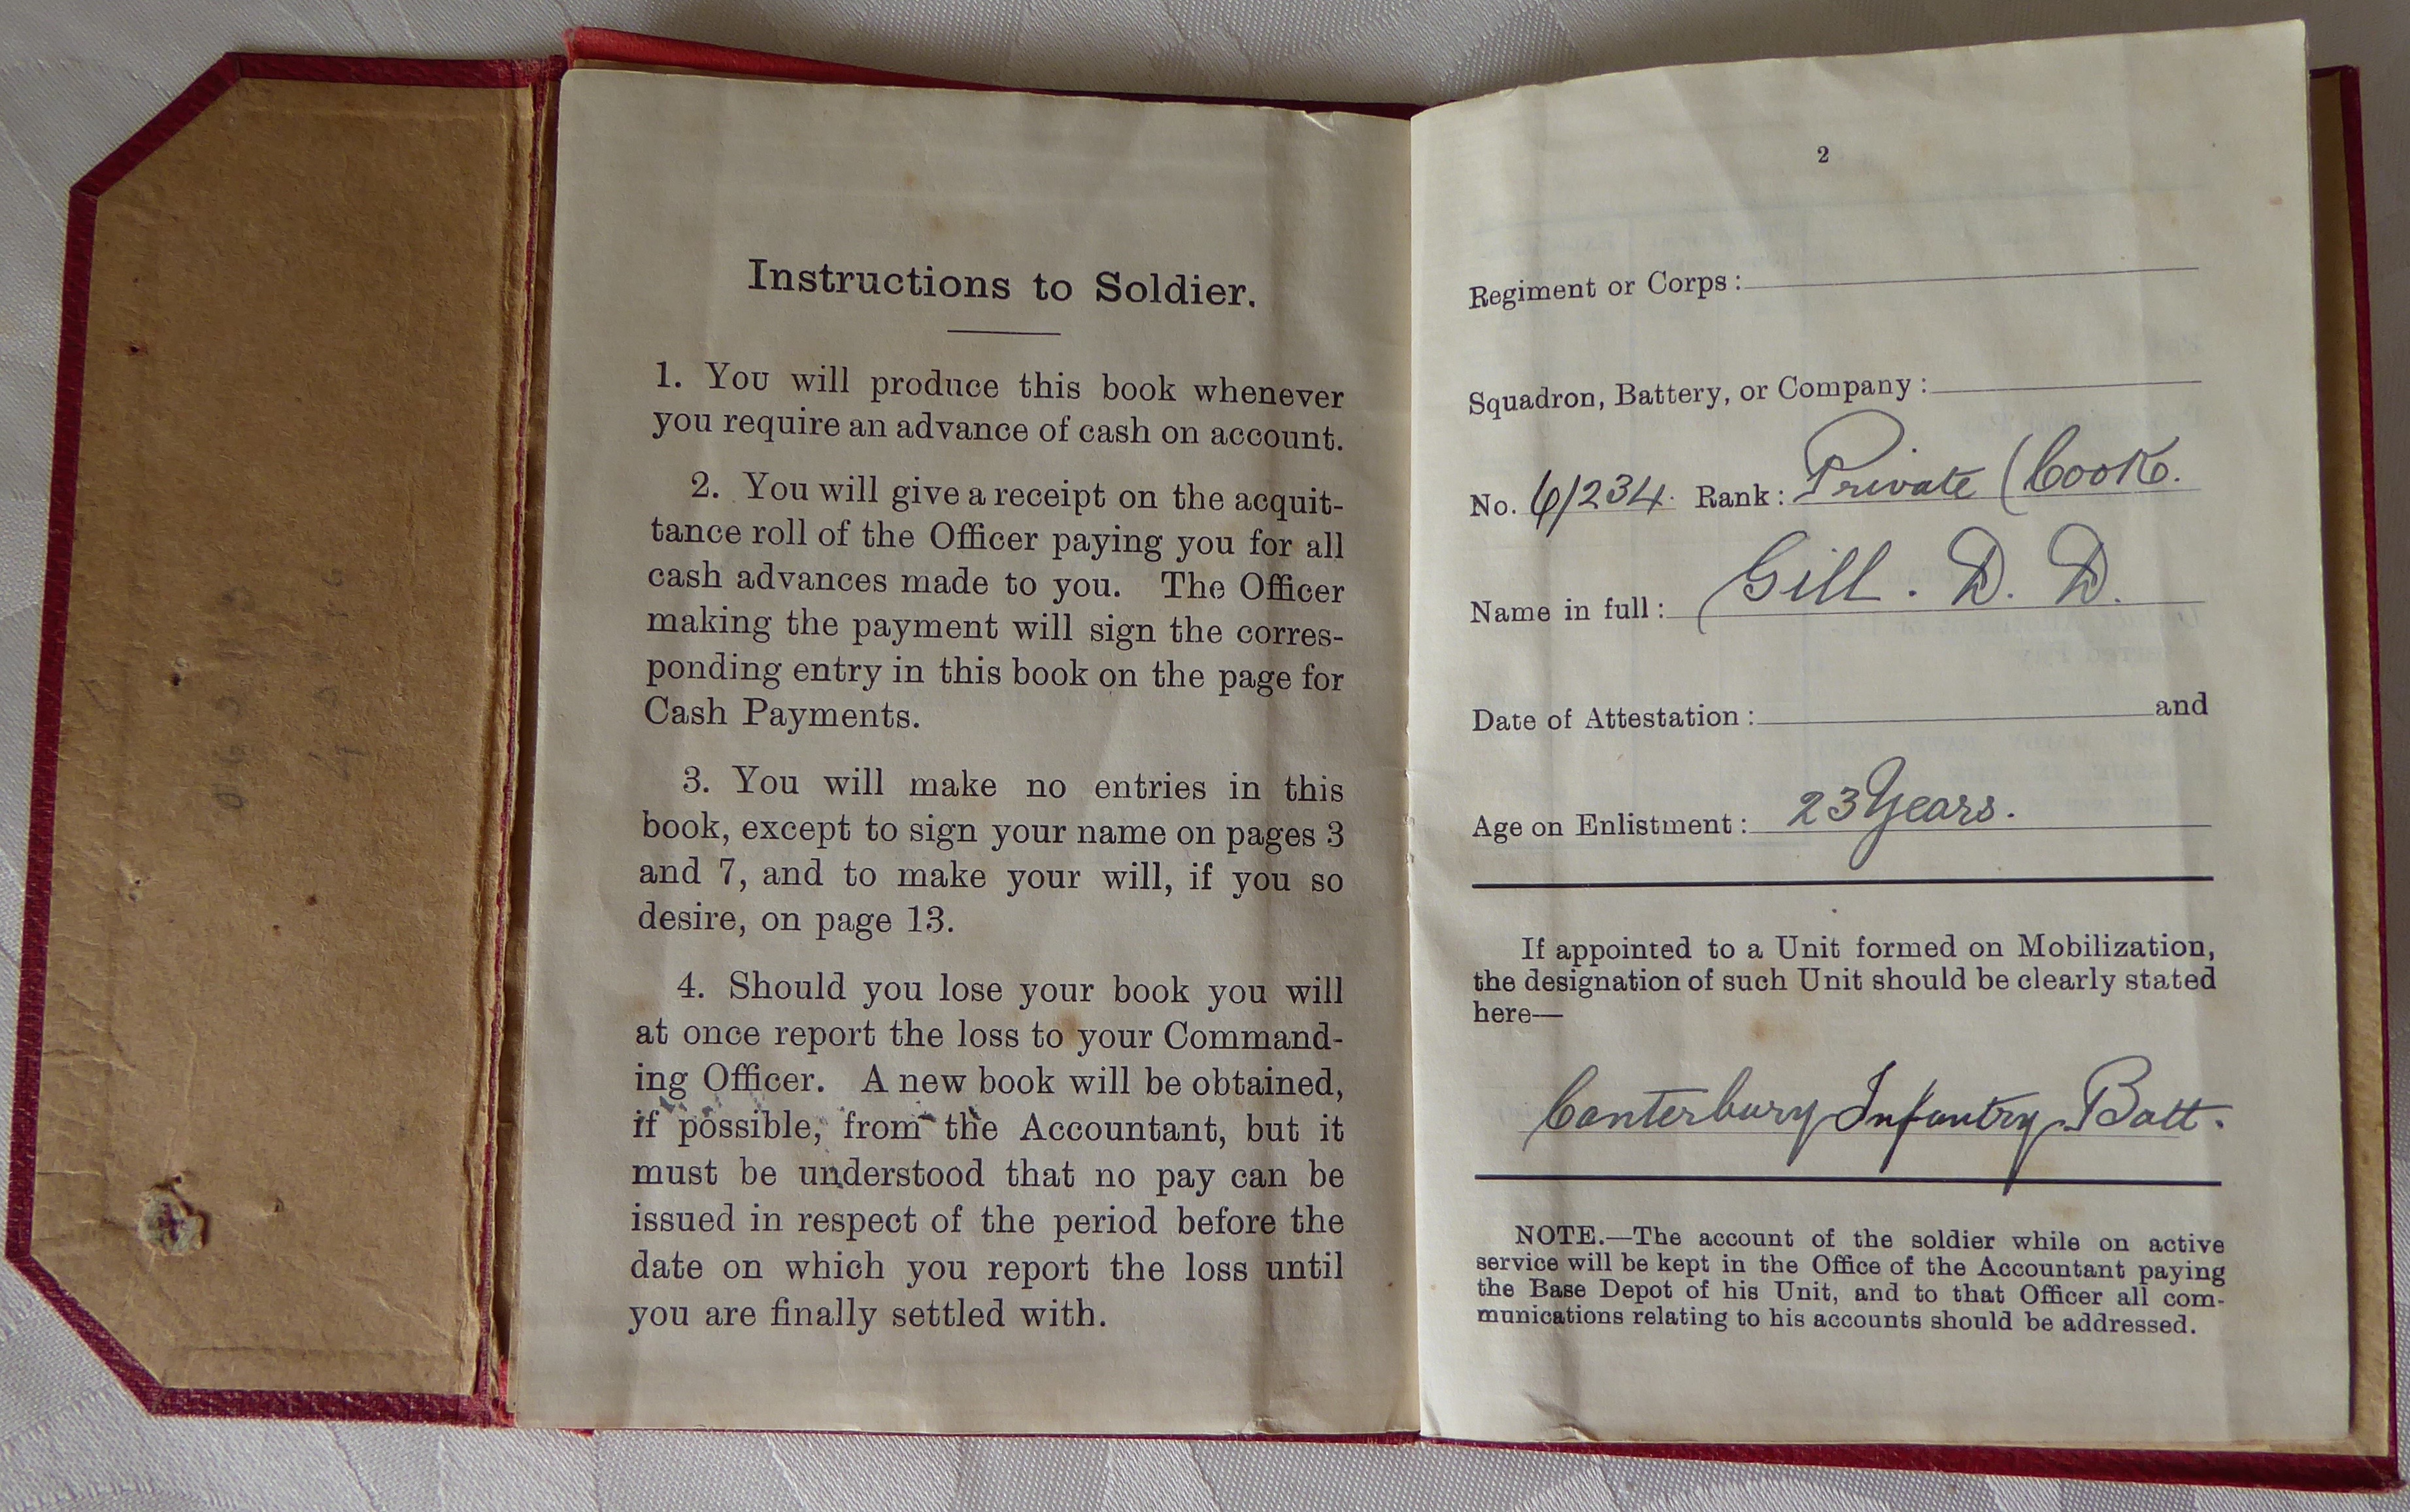 Instructions to Soldier.
1. You will produce this book whenever
you require an advance of cash on account.
2. You will give a receipt on the acquit-
tance roll of the Officer paying you for all
cash advances made to you. The Officer
making the payment will sign the corres-
ponding entry in this book on the page for
Cash Payments.
3. You will make no entries in this
book, except to sign your name on pages 3
and 7, and to make your will, if you so
desire, on page 13.
4. Should you lose your book you will
at once report the loss to your Command-
ing Officer. A new book will be obtained,
if possible, from the Accountant, but it
must be understood that no pay can be
issued in respect of the period before the
date on which you report the loss until
you are finally settled with.
2
Regiment or Corps:
Squadron, Battery, or Company:
No. 6/234. Rank: Private (Cook.
Name in full: Gill. D. D.
Date of Attestation: and
Age on Enlistment: 23 Years.
If appointed to a Unit formed on Mobilization,
the designation of such Unit should be clearly stated
here—
Canterbury Infantry Batt.
NOTE.—The account of the soldier while on active
service will be kept in the Office of the Accountant paying
the Base Depot of his Unit, and to that Officer all com-
munications relating to his accounts should be addressed.